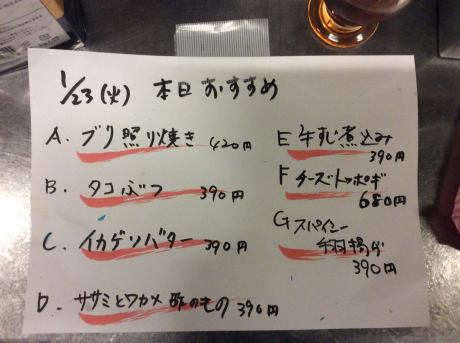 1/23(火) 本日おすすめ
A. ブリ照り焼き 420円
B. タコぶつ 390円
C. イカゲソバター 390円
D. ササミとワカメ酢のもの 390円
E 牛すじ煮込み
390円
F チーズトッポギ
680円
G スパイシー
手羽揚げ
390円